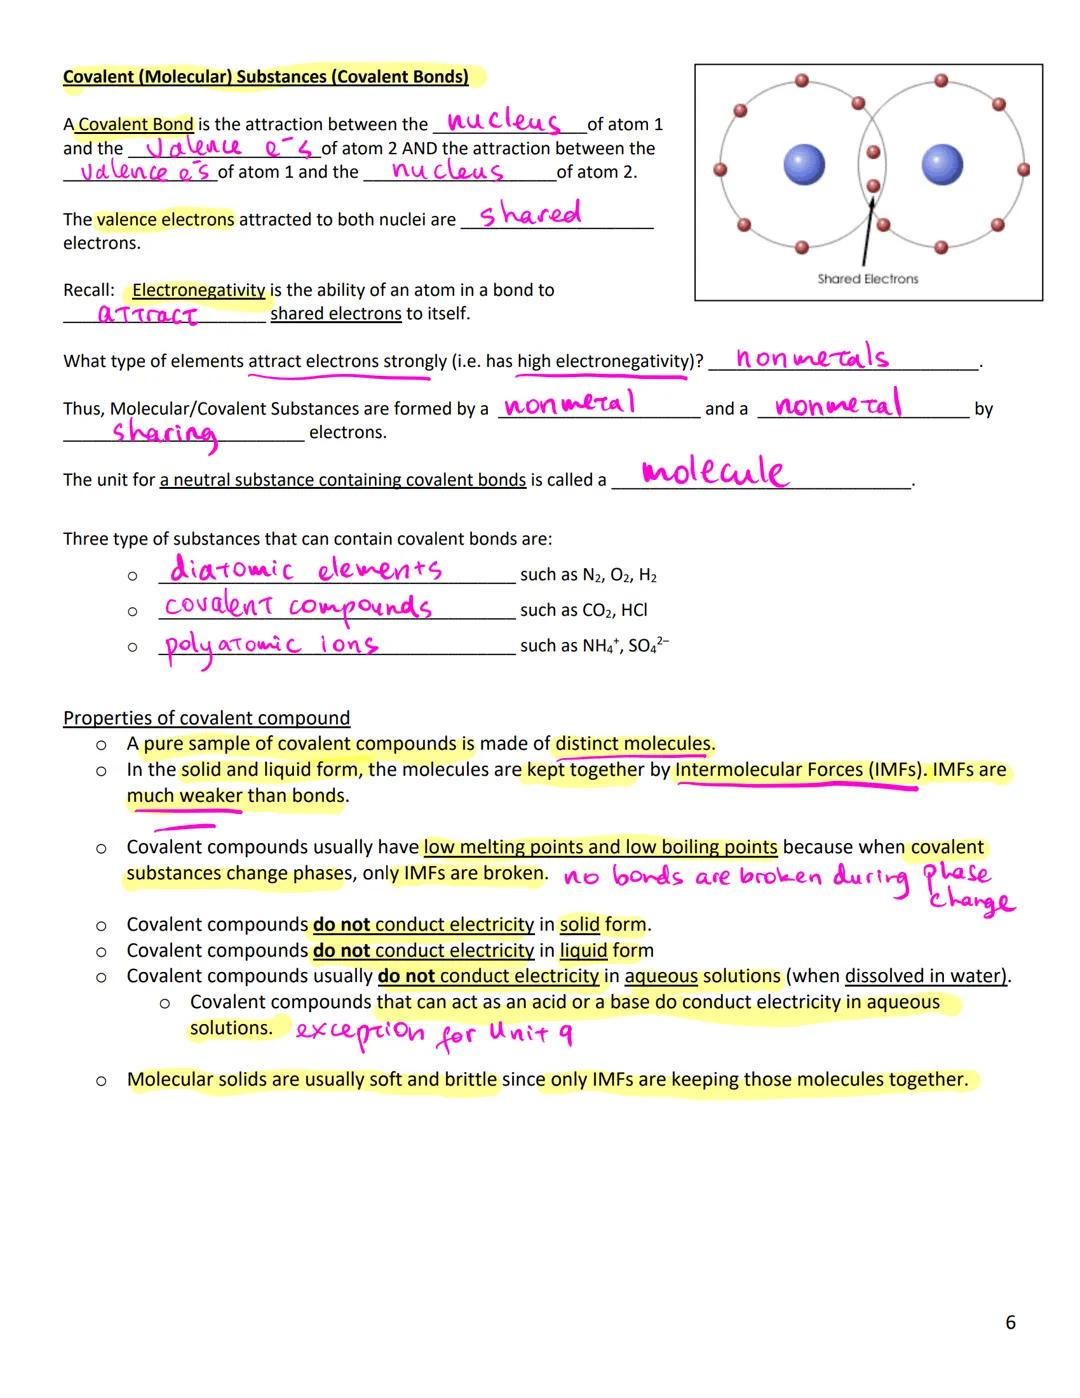 Covalent (Molecular) Substances (Covalent Bonds)
A Covalent Bond is the attraction between the nucleus of atom 1
and the valence e⁻s of atom 2 AND the attraction between the
valence e⁻s of atom 1 and the nucleus of atom 2.
The valence electrons attracted to both nuclei are shared
electrons.
Shared Electrons
Recall: Electronegativity is the ability of an atom in a bond to
attract shared electrons to itself.
What type of elements attract electrons strongly (i.e. has high electronegativity)? nonmetals.
Thus, Molecular/Covalent Substances are formed by a nonmetal and a nonmetal by
sharing electrons.
The unit for a neutral substance containing covalent bonds is called a molecule.
Three type of substances that can contain covalent bonds are:
o diatomic elements such as N₂, O₂, H₂
o covalent compounds such as CO₂, HCl
o polyatomic ions such as NH₄⁺, SO₄²⁻
Properties of covalent compound
o A pure sample of covalent compounds is made of distinct molecules.
o In the solid and liquid form, the molecules are kept together by Intermolecular Forces (IMFs). IMFs are
much weaker than bonds.
o Covalent compounds usually have low melting points and low boiling points because when covalent
substances change phases, only IMFs are broken. no bonds are broken during phase
change
o Covalent compounds do not conduct electricity in solid form.
o Covalent compounds do not conduct electricity in liquid form
o Covalent compounds usually do not conduct electricity in aqueous solutions (when dissolved in water).
o Covalent compounds that can act as an acid or a base do conduct electricity in aqueous
solutions. exception for Unit 9
o Molecular solids are usually soft and brittle since only IMFs are keeping those molecules together.
6